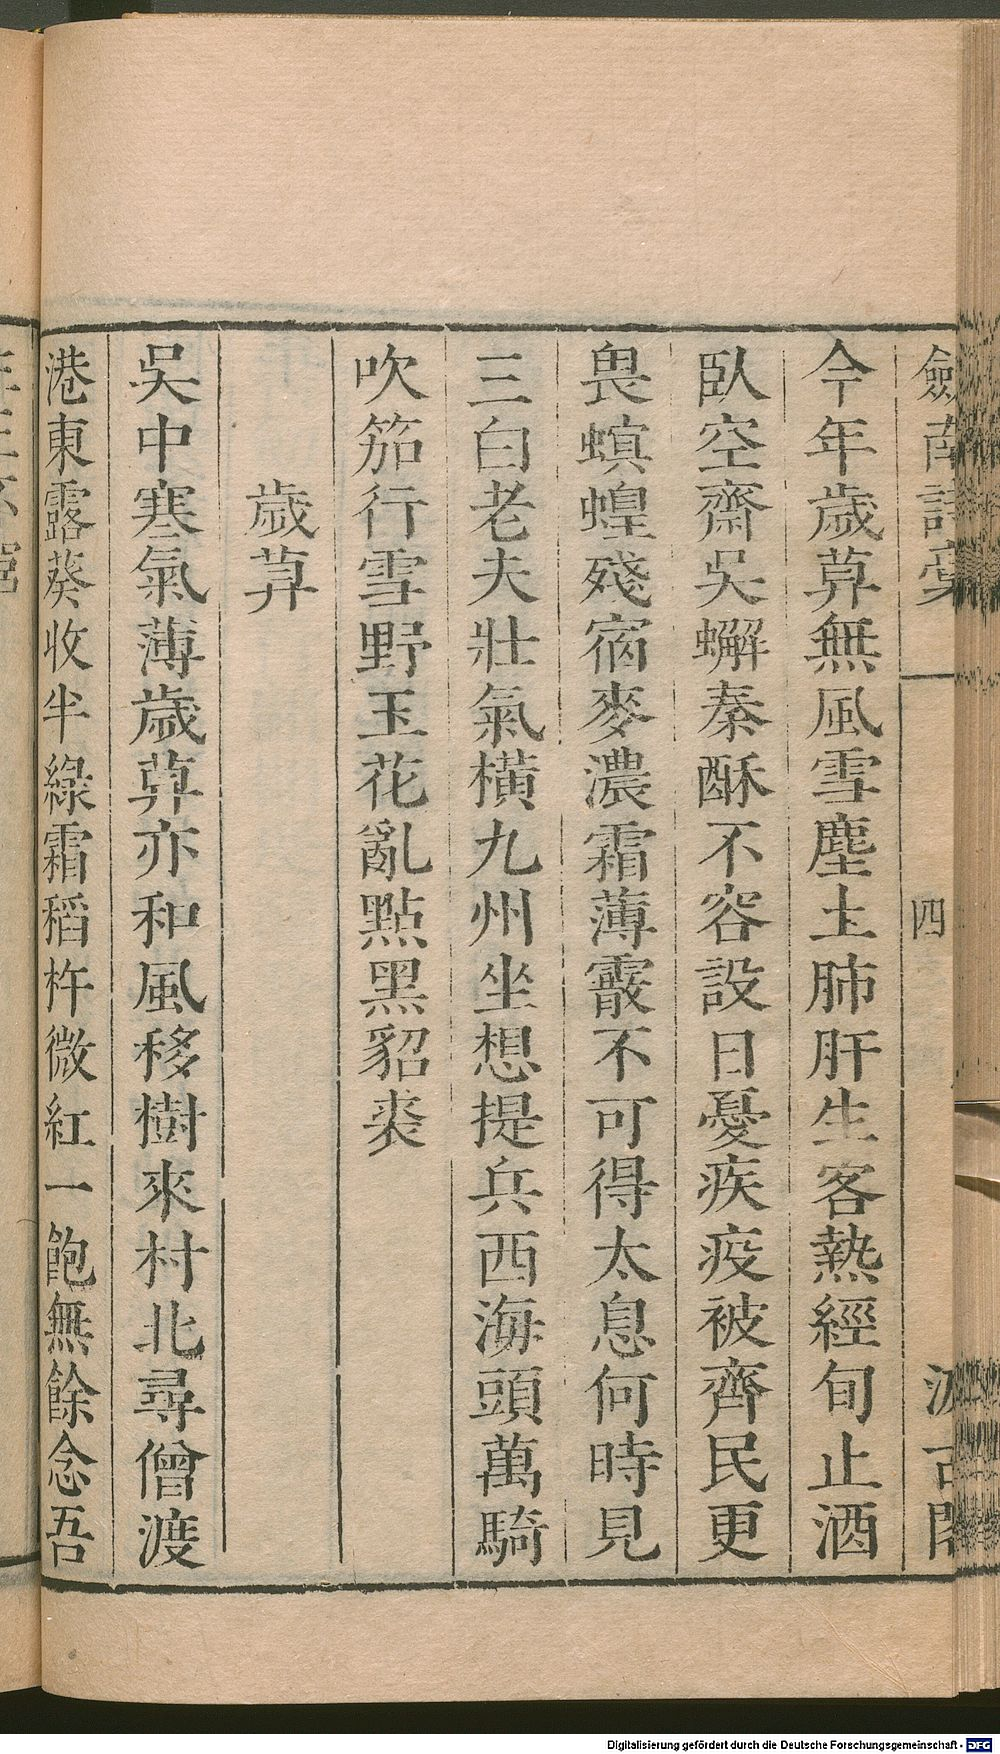 劒南詩藁
四
汲古閣
今年歲暮無風雪塵土肺肝生客熱經旬止酒
臥空齋吳蠏秦酥不容設日憂疾疫被齊民更
畏螟蝗殘宿麥濃霜薄霰不可得太息何時見
三白老夫壯氣橫九州坐想提兵西海頭萬騎
吹笳行雪野玉花亂點黑貂裘
歲暮
吳中寒氣薄歲暮亦和風移樹來村北尋僧渡
港東露葵收半綠霜稻杵微紅一飽無餘念吾
Digitalisierung gefördert durch die Deutsche Forschungsgemeinschaft - DFG